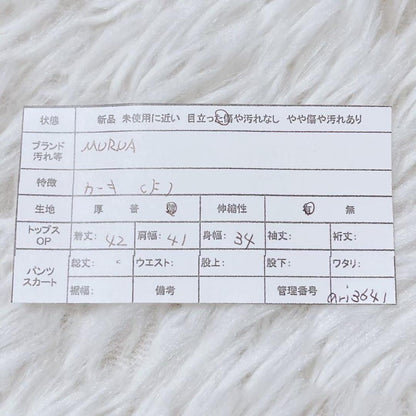 状態 新品 未使用に近い 目立った傷や汚れなし やや傷や汚れあり
ブランド 汚れ等 MURUA
特徴 カーキ
生地 厚 普 伸縮性 有 無
トップス OP 着丈: 42 肩幅: 41 身幅: 34 袖丈: 裄丈:
パンツ スカート 総丈: ウエスト: 股上: 股下: ワタリ:
裾幅: 備考 管理番号 ari3641